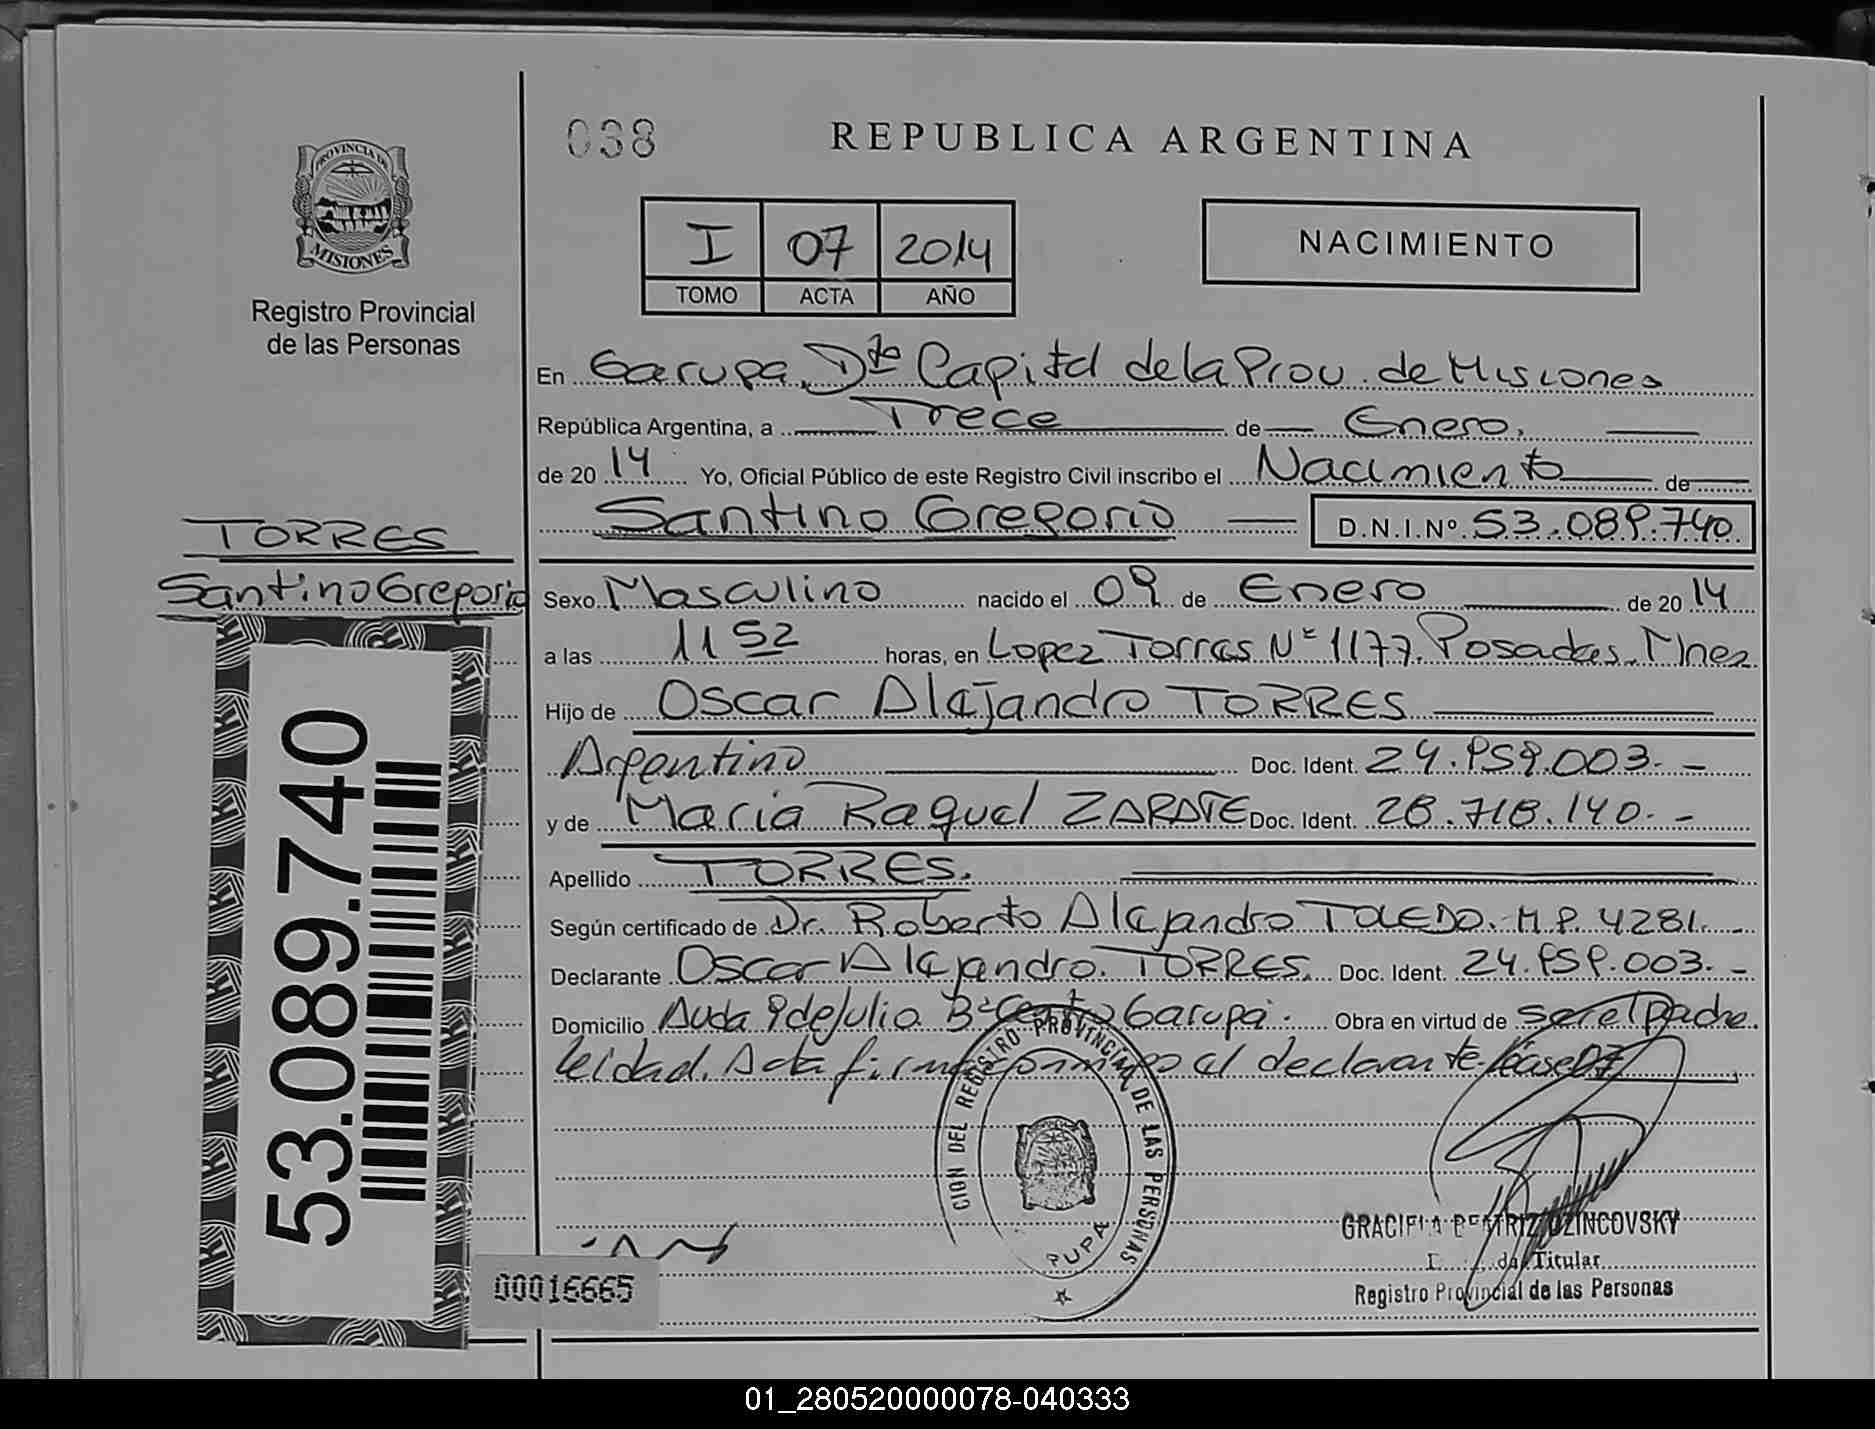 038
REPUBLICA ARGENTINA
PROVINCIA DE
MISIONES
Registro Provincial
de las Personas
I 07 2014
TOMO ACTA AÑO
NACIMIENTO
En Garupa, Dto Capital de la Prov. de Misiones
República Argentina, a Trece de Enero,
de 2014 Yo, Oficial Público de este Registro Civil inscribo el Nacimiento de
Santino Gregorio D.N.I.Nº 53.089.740
TORRES
Santino Gregorio
Sexo Masculino nacido el 09 de Enero de 2014
a las 11 52 horas, en Lopez Torres Nº 1177. Posadas. Mnes
Hijo de Oscar Alejandro TORRES
Argentino Doc. Ident. 24.959.003.-
y de Maria Raquel ZARATE Doc. Ident. 28.718.140.-
Apellido TORRES.
Según certificado de Dr. Roberto Alejandro TOLEDO. M.P. 4281.-
Declarante Oscar Alejandro TORRES Doc. Ident. 24.959.003.-
Domicilio Avda 9 de Julio Bº Centro Garupa. Obra en virtud de ser el padre.
leidad. Acta firma conmigo el declarante. Lease 07
53.089.740
CION DEL REGISTRO PROVINCIAL DE LAS PERSONAS
RUPA
GRACIELA BEATRIZ OZINCOVSKY
Titular
Registro Provincial de las Personas
00016665
01_280520000078-040333